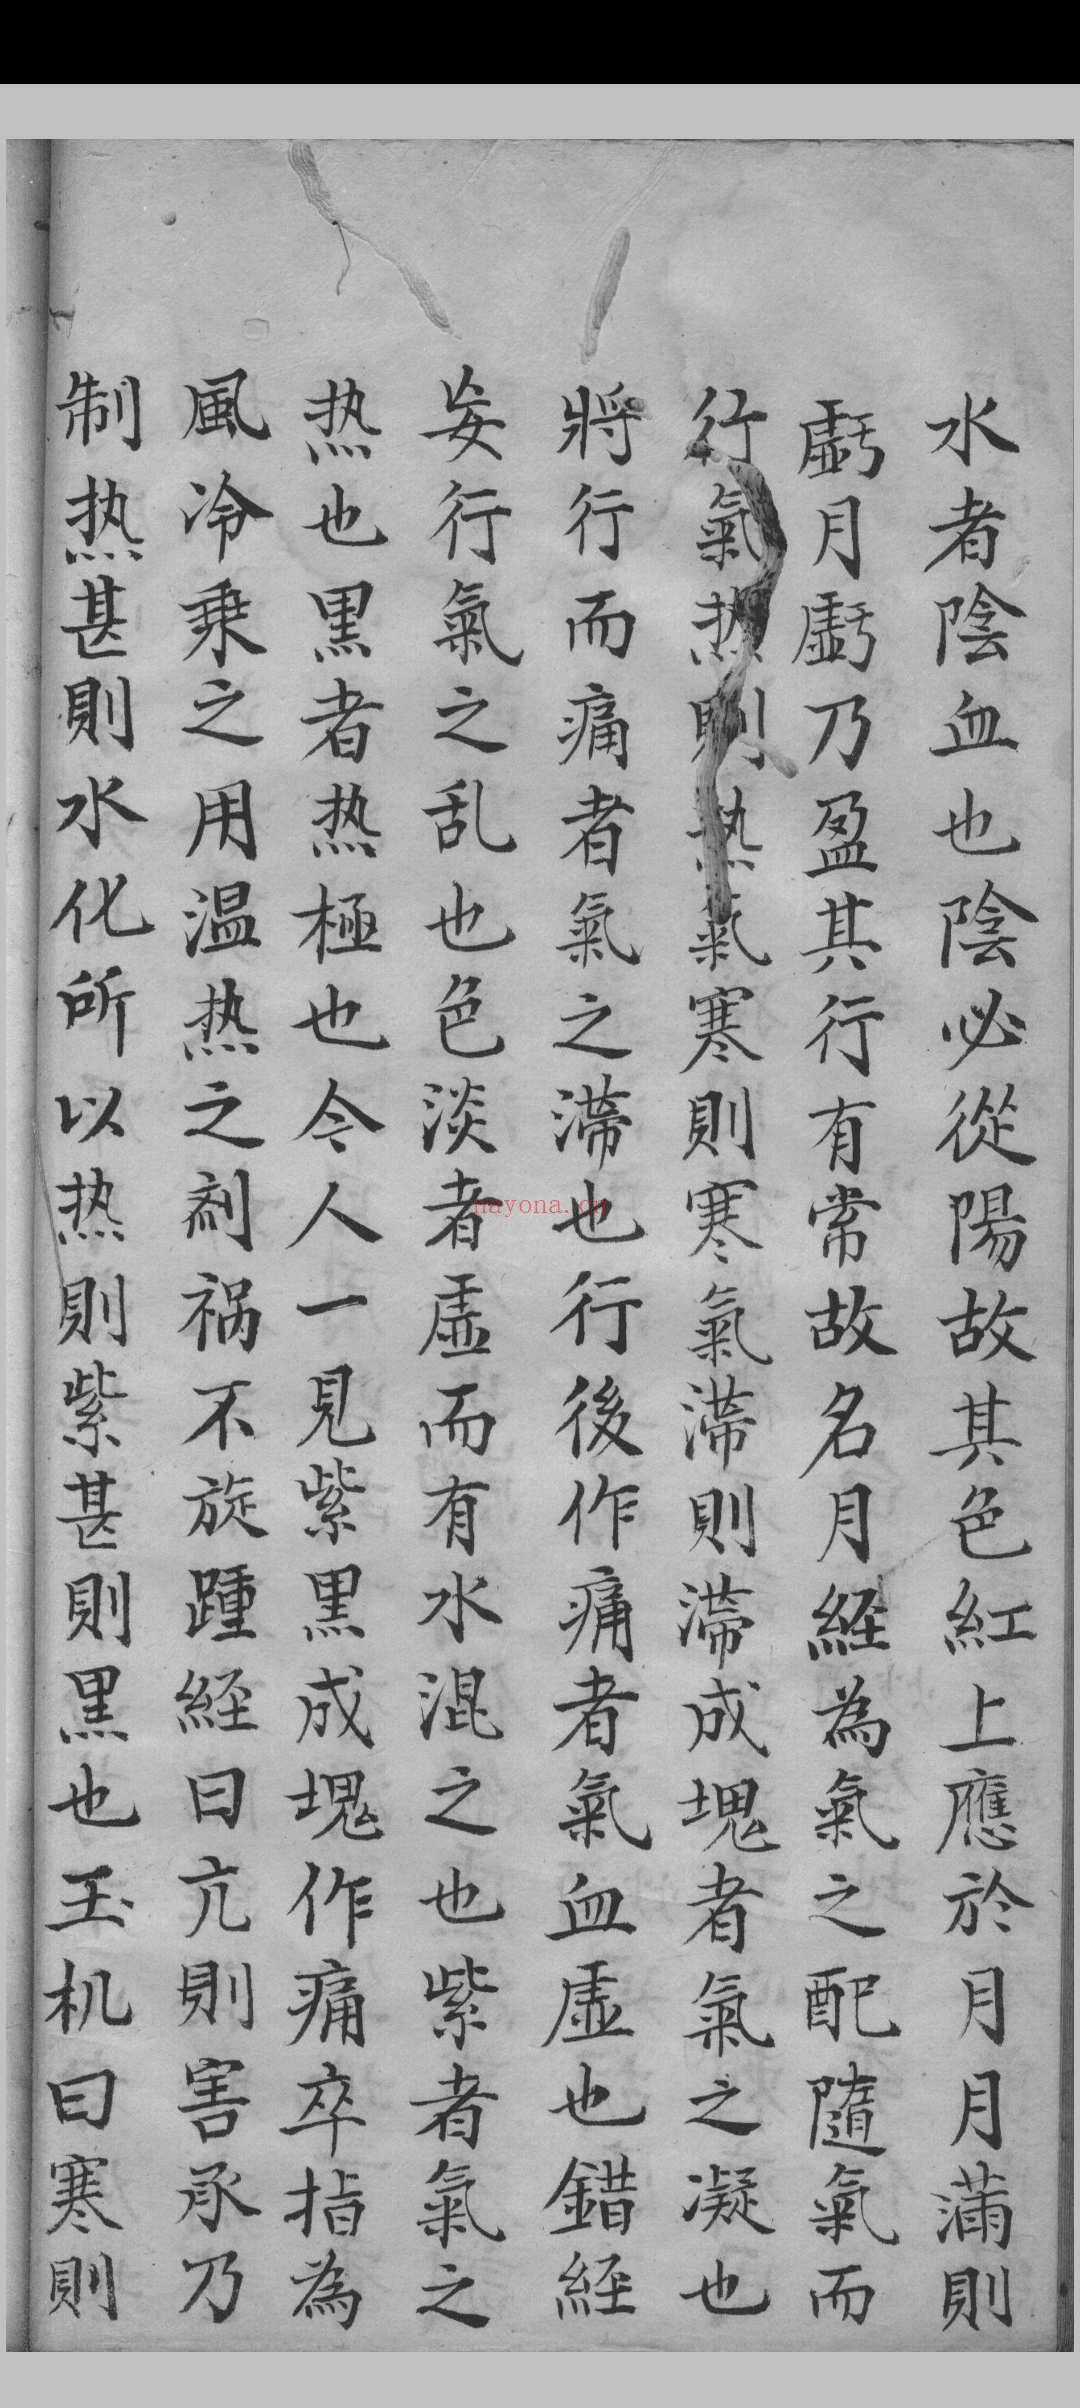 水者陰血也陰必從陽故其色紅上應於月月滿則
虧月虧乃盈其行有常故名月經為氣之配隨氣而
行氣热則热氣寒則寒氣滯則滯成塊者氣之凝也
將行而痛者氣之滯也行後作痛者氣血虛也錯経
妄行氣之乱也色淡者虛而有水混之也紫者氣之
热也黒者热極也令人一見紫黒成塊作痛卒指為
風冷乗之用温热之剤祸不旋踵経曰亢則害承乃
制热甚則水化所以热則紫甚則黒也玉机曰寒則
nayona.cn